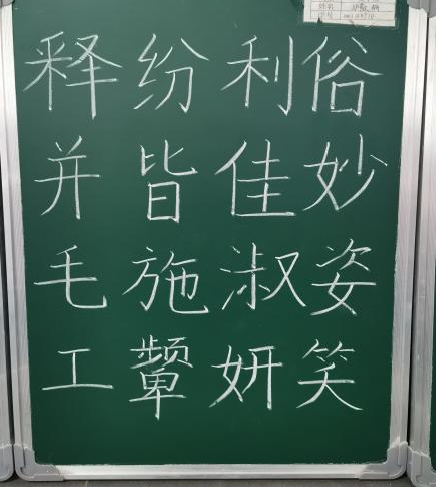 释纷利俗
并皆佳妙
毛施淑姿
工颦妍笑